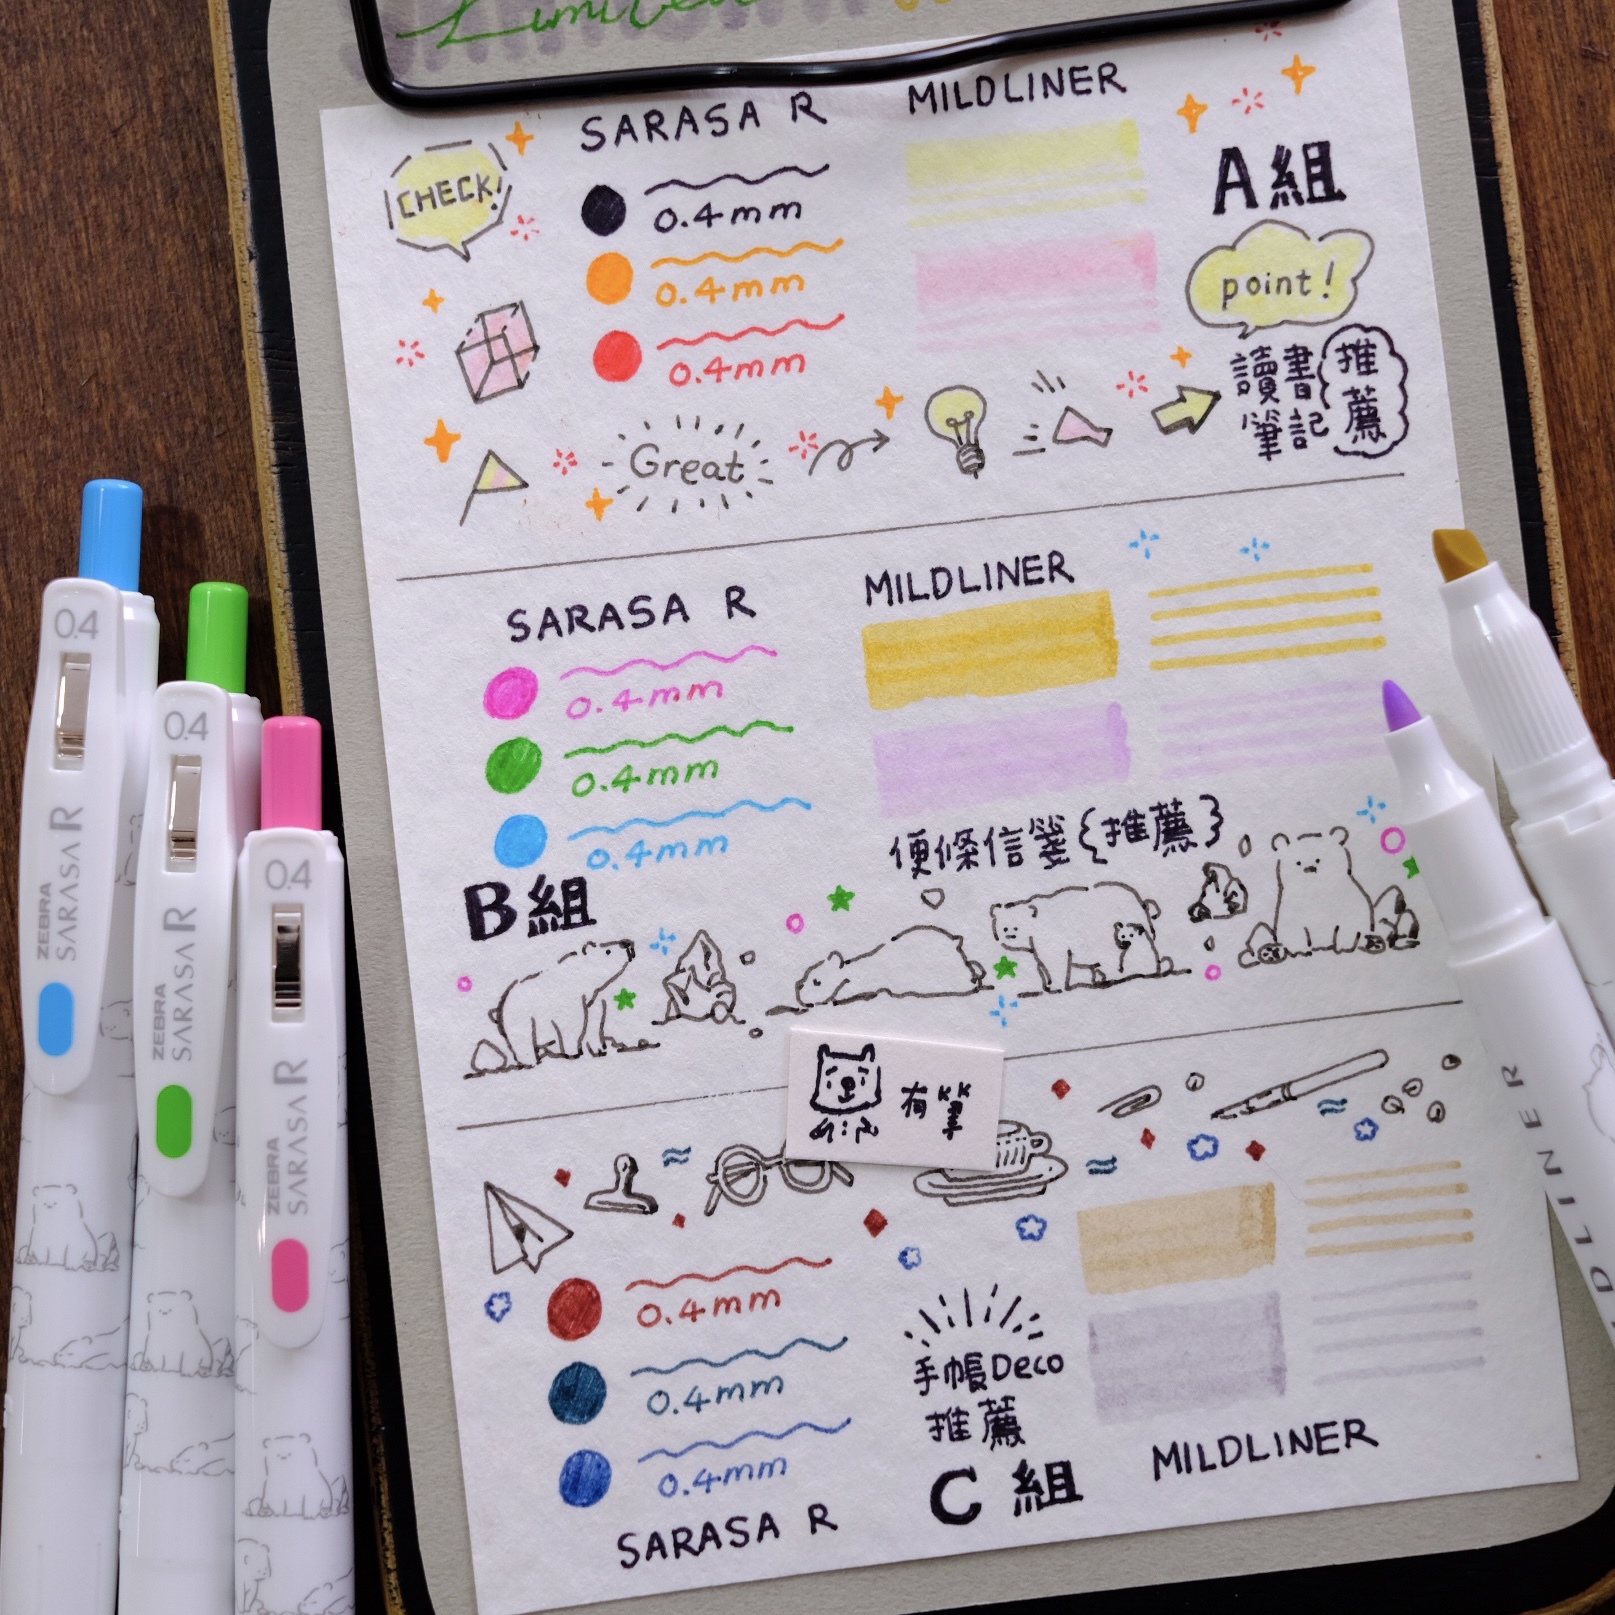 Limited
SARASA R
MILDLINER
CHECK!
0.4mm
0.4mm
0.4mm
A組
point!
讀書
筆記
推薦
Great
SARASA R
MILDLINER
0.4mm
0.4mm
0.4mm
便條信箋{推薦}
B組
有
0.4mm
0.4mm
0.4mm
手帳Deco
推薦
C組
SARASA R
MILDLINER
0.4
ZEBRA
SARASA R
0.4
ZEBRA
SARASA R
0.4
ZEBRA
SARASA R
DLINER